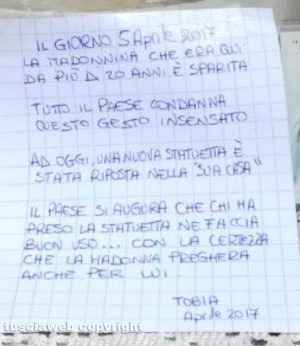 IL GIORNO 5 Aprile 2017
LA MADONNINA CHE ERA QUI
DA PIÙ DI 20 ANNI È SPARITA
TUTTO IL PAESE CONDANNA
QUESTO GESTO INSENSATO
AD OGGI, UNA NUOVA STATUETTA È
STATA RIPOSTA NELLA "SUA CASA"
IL PAESE SI AUGURA CHE CHI HA
PRESO LA STATUETTA NE FACCIA
BUON USO... CON LA CERTEZZA
CHE LA MADONNA PREGHERÀ
ANCHE PER LUI.
TOBIA
Aprile 2017
tusciaweb copyright